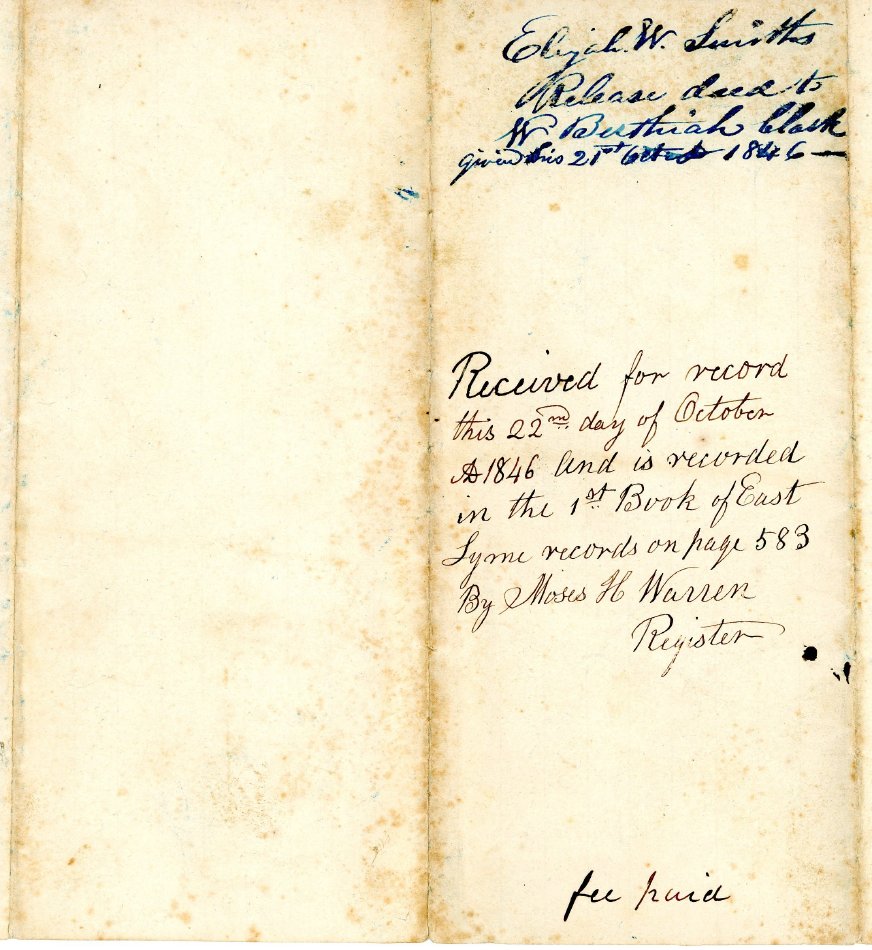 Elijah W. Smiths
Release deed to
W Berthiah Clark
given this 21st Octr 1846 —
Received for record
this 22nd day of October
AD 1846 And is recorded
in the 1st Book of East
Lyme records on page 583
By Moses H Warren
Register
fee paid